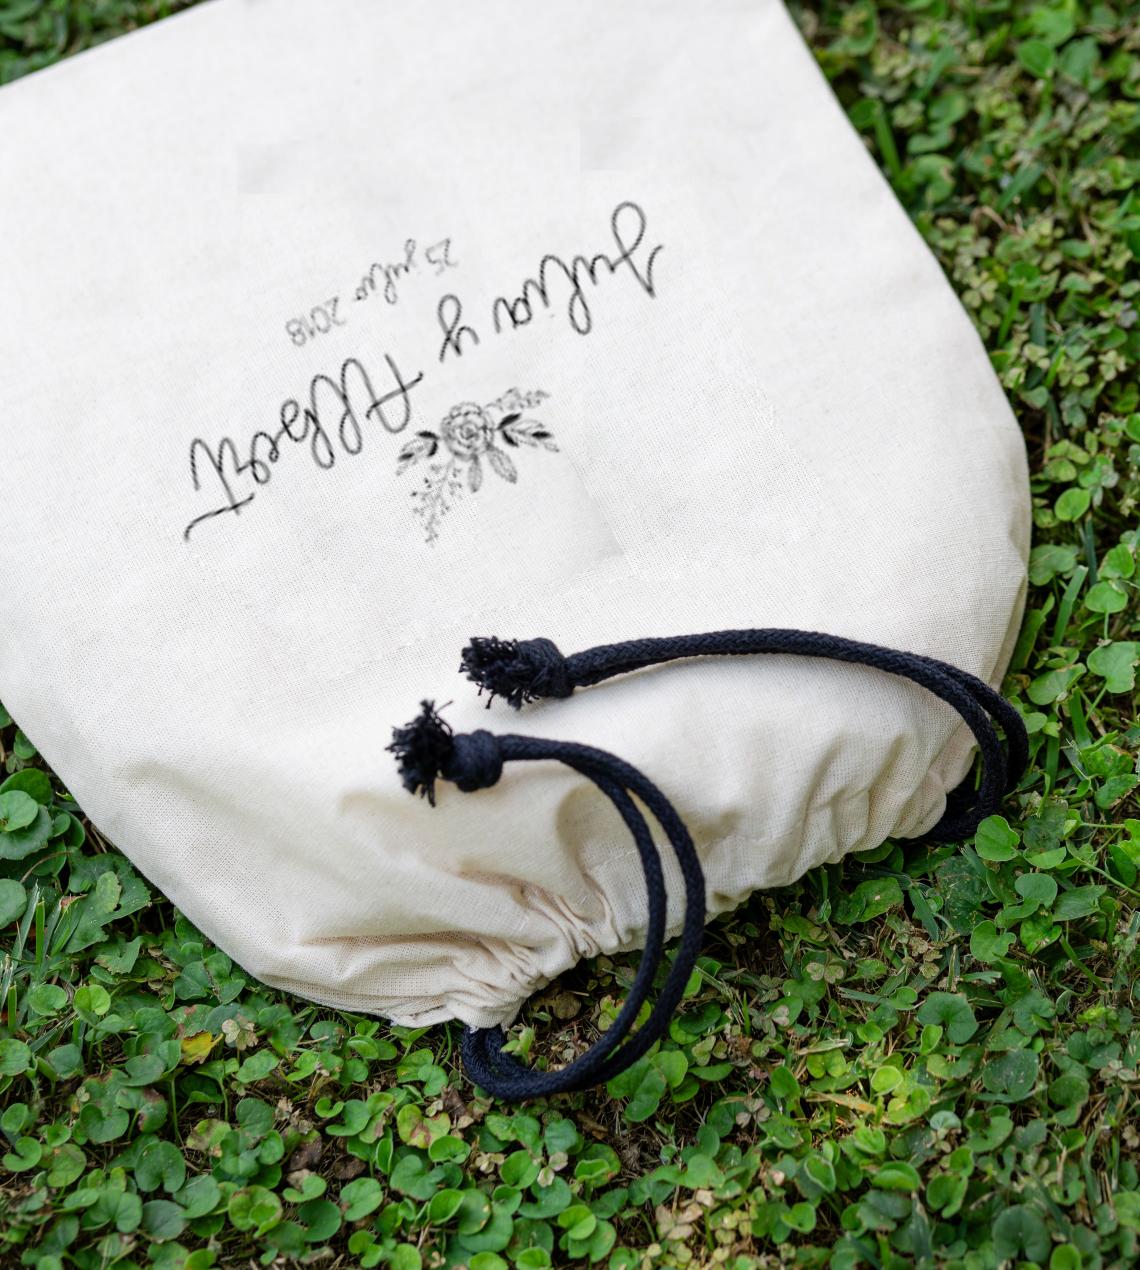 Julia y Albert
25 julio 2018